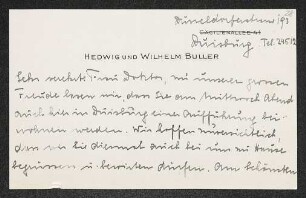 Düsseldorferstrasse 193
CÄCILIENALLEE 61
Duisburg Tel. 24512
HEDWIG UND WILHELM BULLER
Sehr verehrte Frau Doktor, mit unserer grossen
Freude lesen wir, dass Sie am Mittwoch Abend
auch hier in Duisburg einer Aufführung bei-
wohnen werden. Wir hoffen zuversichtlich
dass wir Sie diesmal auch bei uns zu Hause
begrüssen u. bewirten dürfen. Am schönsten